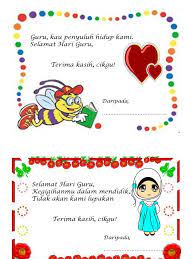 Guru, kau penyuluh hidup kami.
Selamat Hari Guru,
Terima kasih, cikgu!
Daripada,
Selamat Hari Guru,
Kegigihanmu dalam mendidik,
Tidak akan kami lupakan
Terima kasih, cikgu!
Daripada,